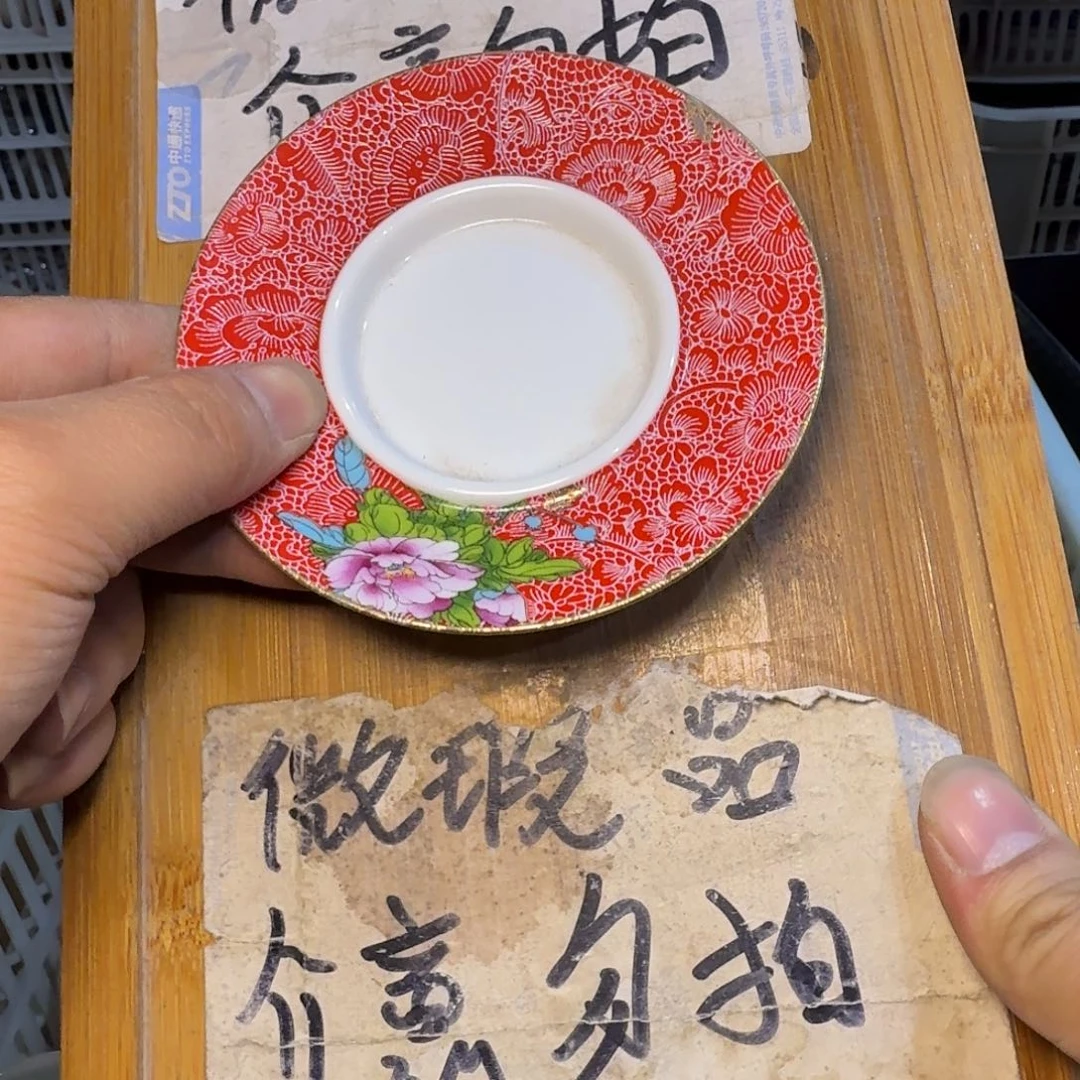 介意勿拍
ZTO 中通快递
ZTO EXPRESS
微瑕品
介意勿拍